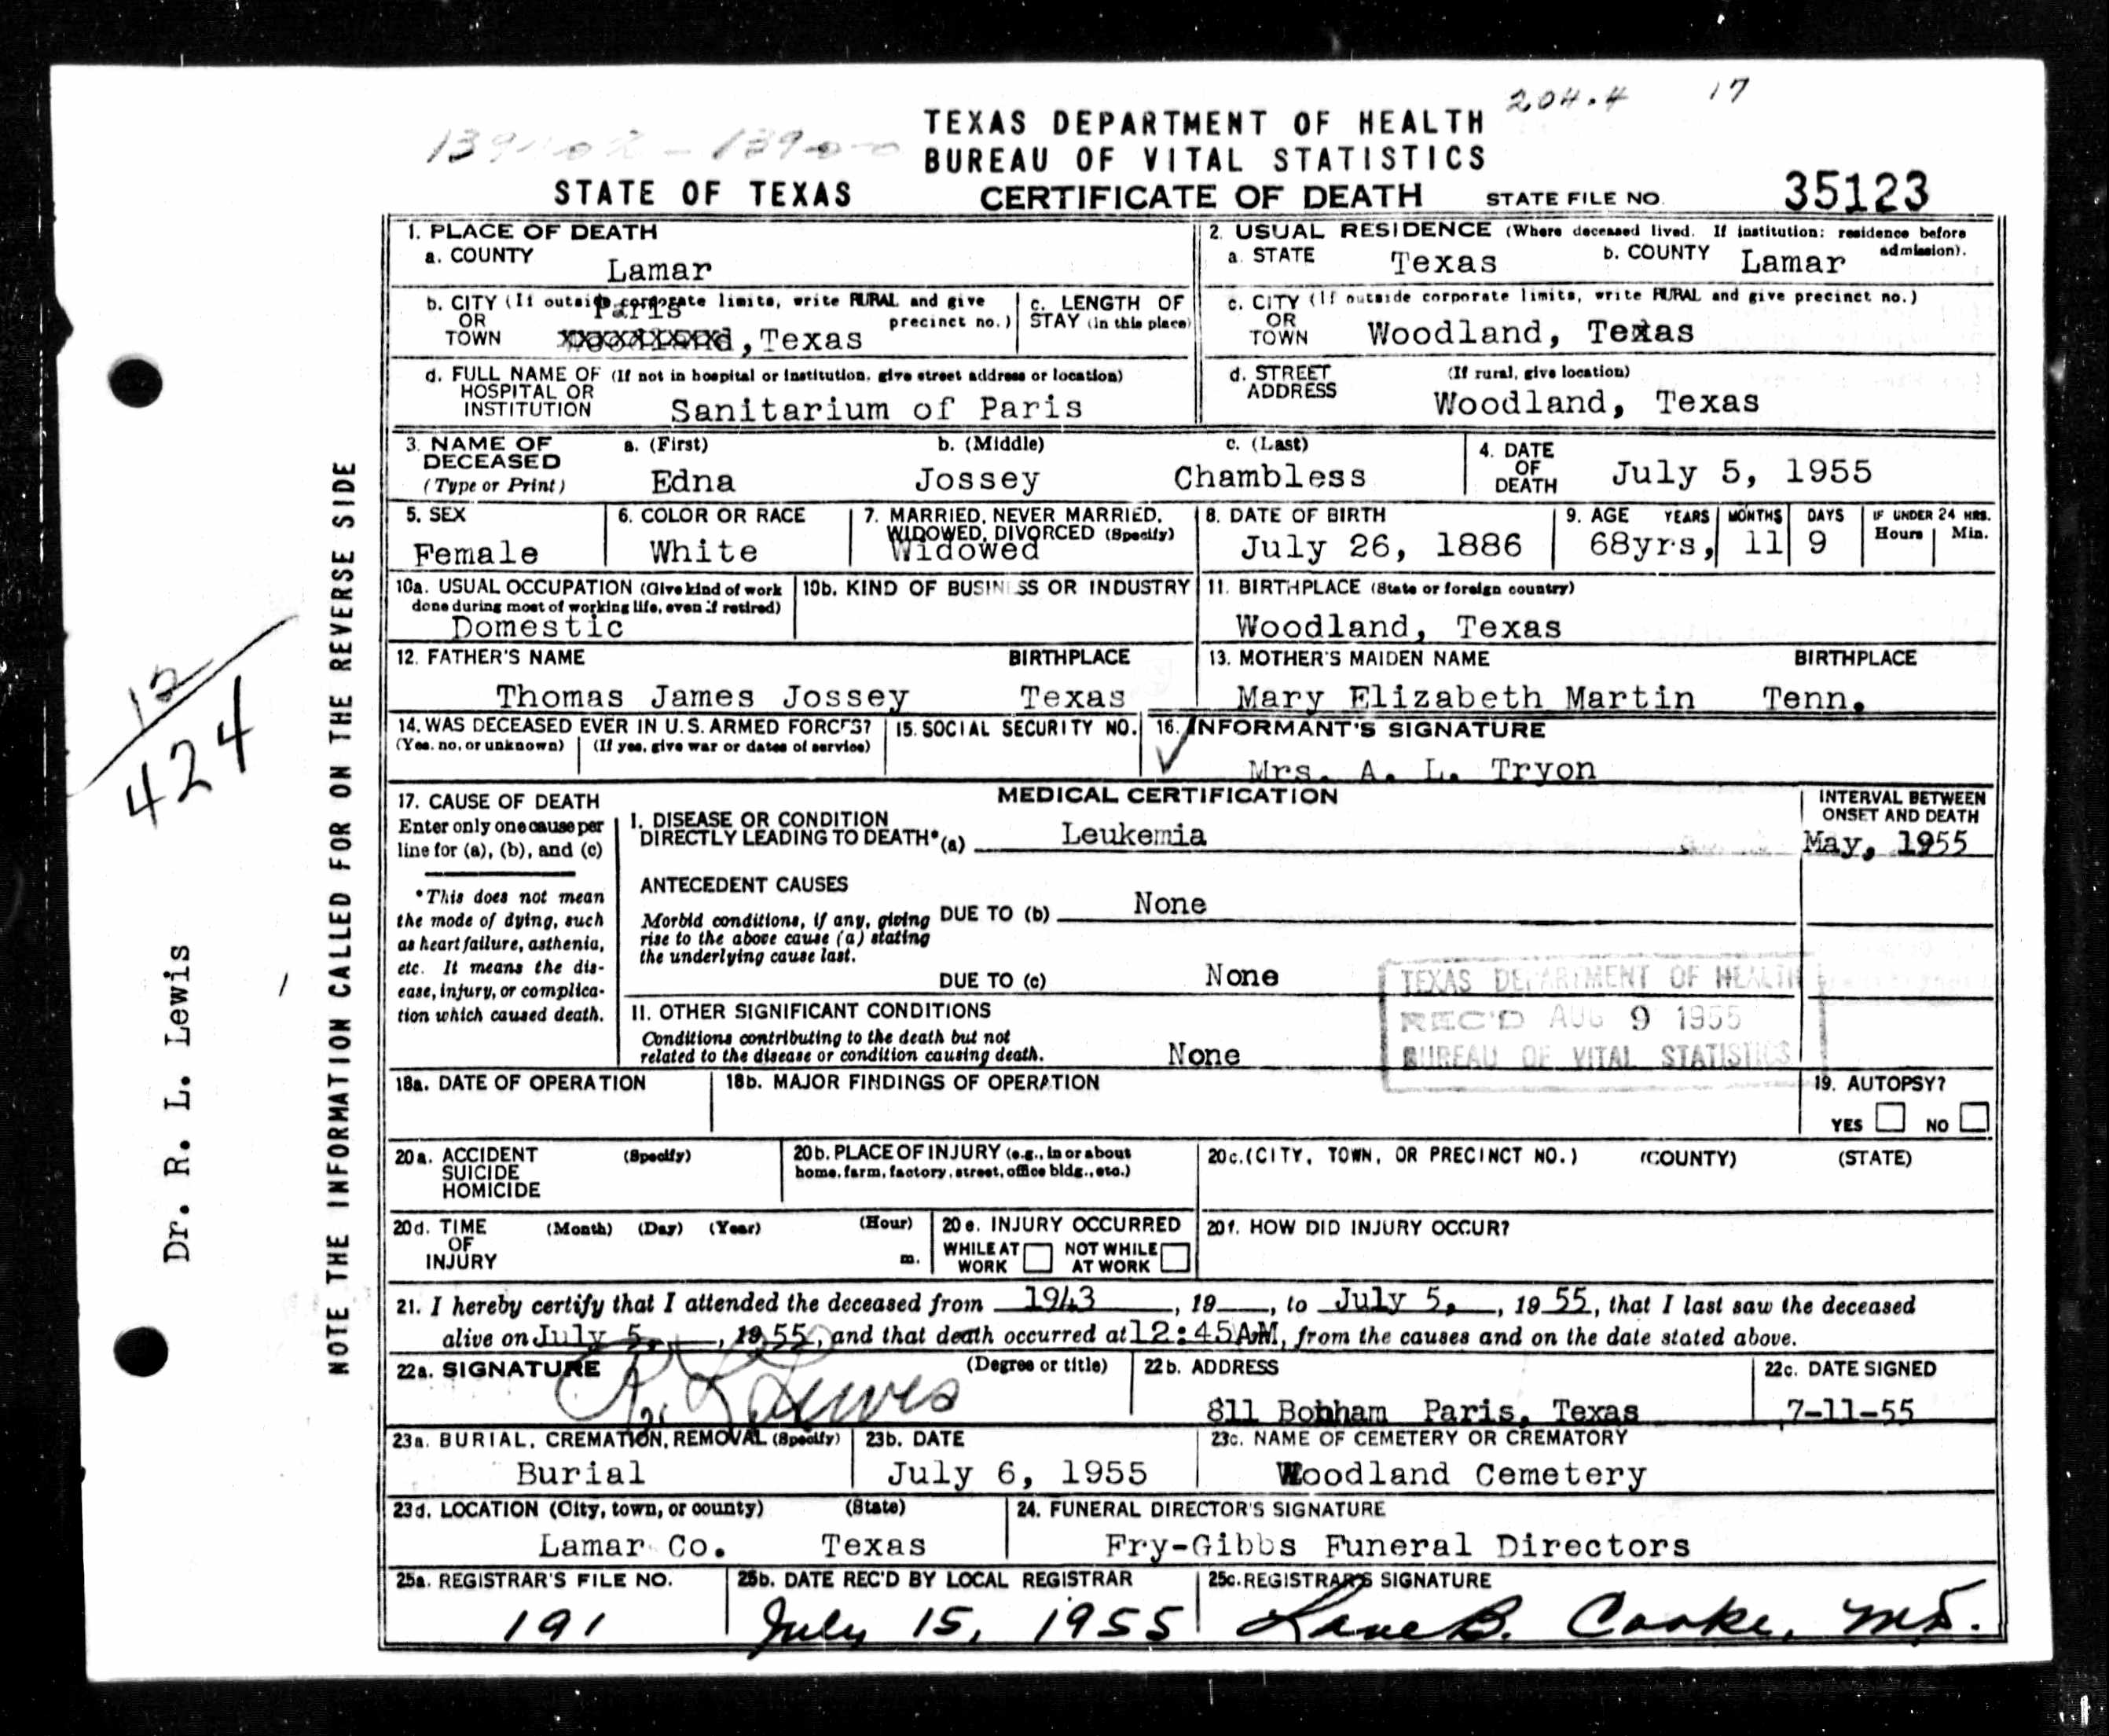 204.4 17
TEXAS DEPARTMENT OF HEALTH
BUREAU OF VITAL STATISTICS
STATE OF TEXAS CERTIFICATE OF DEATH STATE FILE NO. 35123
1. PLACE OF DEATH
a. COUNTY
Lamar
2. USUAL RESIDENCE (Where deceased lived. If institution: residence before admission).
a. STATE Texas b. COUNTY Lamar
b. CITY (If outside corporate limits, write RURAL and give precinct no.)
OR
TOWN
Paris
, Texas
c. LENGTH OF
STAY (in this place)
c. CITY (If outside corporate limits, write RURAL and give precinct no.)
OR
TOWN Woodland, Texas
d. FULL NAME OF (If not in hospital or institution, give street address or location)
HOSPITAL OR
INSTITUTION Sanitarium of Paris
d. STREET (If rural, give location)
ADDRESS
Woodland, Texas
3. NAME OF
DECEASED
(Type or Print)
a. (First) b. (Middle) c. (Last)
Edna Jossey Chambless
4. DATE
OF
DEATH
July 5, 1955
5. SEX
Female
6. COLOR OR RACE
White
7. MARRIED, NEVER MARRIED,
WIDOWED, DIVORCED (Specify)
Widowed
8. DATE OF BIRTH
July 26, 1886
9. AGE YEARS MONTHS DAYS IF UNDER 24 HRS.
Hours Min.
68yrs, 11 9
10a. USUAL OCCUPATION (Give kind of work
done during most of working life, even if retired)
Domestic
10b. KIND OF BUSINESS OR INDUSTRY
11. BIRTHPLACE (State or foreign country)
Woodland, Texas
12. FATHER'S NAME BIRTHPLACE
Thomas James Jossey Texas
13. MOTHER'S MAIDEN NAME BIRTHPLACE
Mary Elizabeth Martin Tenn.
14. WAS DECEASED EVER IN U.S. ARMED FORCES?
(Yes, no, or unknown) (If yes, give war or dates of service)
15. SOCIAL SECURITY NO.
16. INFORMANT'S SIGNATURE
Mrs. A. L. Tryon
17. CAUSE OF DEATH
Enter only one cause per
line for (a), (b), and (c)
*This does not mean
the mode of dying, such
as heart failure, asthenia,
etc. It means the dis-
ease, injury, or complica-
tion which caused death.
MEDICAL CERTIFICATION
I. DISEASE OR CONDITION
DIRECTLY LEADING TO DEATH*(a) Leukemia
INTERVAL BETWEEN
ONSET AND DEATH
May, 1955
ANTECEDENT CAUSES
Morbid conditions, if any, giving
rise to the above cause (a) stating
the underlying cause last.
DUE TO (b) None
DUE TO (c) None
II. OTHER SIGNIFICANT CONDITIONS
Conditions contributing to the death but not
related to the disease or condition causing death. None
TEXAS DEPARTMENT OF HEALTH
REC'D AUG 9 1955
BUREAU OF VITAL STATISTICS
18a. DATE OF OPERATION
18b. MAJOR FINDINGS OF OPERATION
19. AUTOPSY?
YES NO
20a. ACCIDENT (Specify)
SUICIDE
HOMICIDE
20b. PLACE OF INJURY (e.g., in or about
home, farm, factory, street, office bldg., etc.)
20c. (CITY, TOWN, OR PRECINCT NO.) (COUNTY) (STATE)
20d. TIME (Month) (Day) (Year) (Hour)
OF
INJURY m.
20e. INJURY OCCURRED
WHILE AT
WORK
NOT WHILE
AT WORK
20f. HOW DID INJURY OCCUR?
21. I hereby certify that I attended the deceased from 1943, 19 , to July 5, , 19 55, that I last saw the deceased
alive on July 5, , 19 55, and that death occurred at 12:45AM, from the causes and on the date stated above.
22a. SIGNATURE (Degree or title)
R. L. Lewis
22b. ADDRESS
811 Bonham Paris, Texas
22c. DATE SIGNED
7-11-55
23a. BURIAL, CREMATION, REMOVAL (Specify)
Burial
23b. DATE
July 6, 1955
23c. NAME OF CEMETERY OR CREMATORY
Woodland Cemetery
23d. LOCATION (City, town, or county) (State)
Lamar Co. Texas
24. FUNERAL DIRECTOR'S SIGNATURE
Fry-Gibbs Funeral Directors
25a. REGISTRAR'S FILE NO.
191
25b. DATE REC'D BY LOCAL REGISTRAR
July 15, 1955
25c. REGISTRAR'S SIGNATURE
B. Cooke, M.D.
NOTE THE INFORMATION CALLED FOR ON THE REVERSE SIDE
12
424
Dr. R. L. Lewis